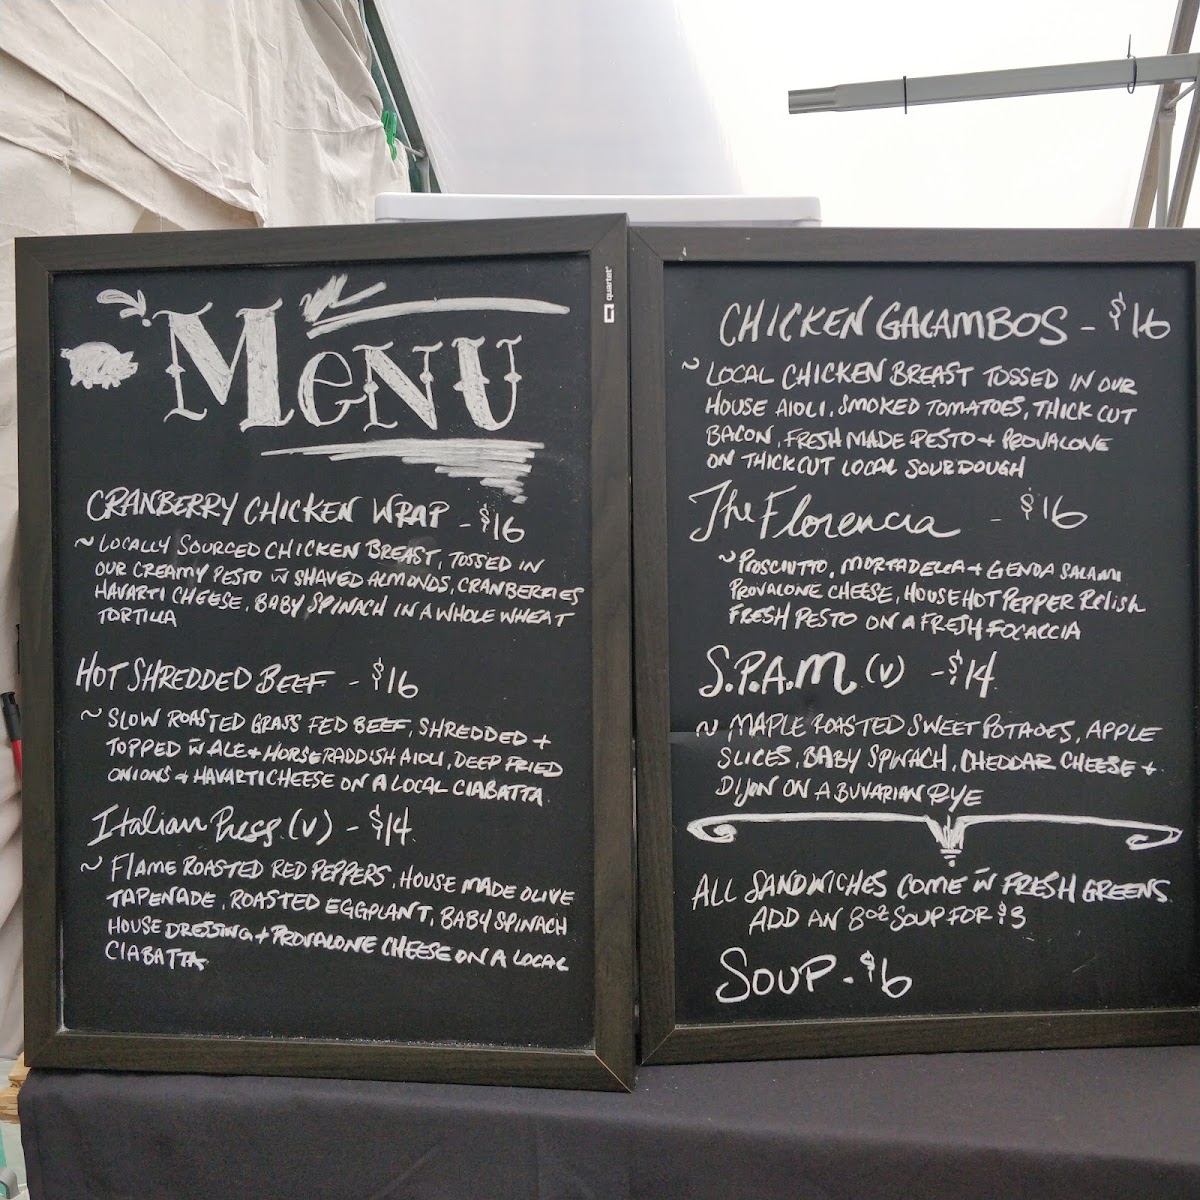 quartet
MENU
CRANBERRY CHICKEN WRAP - $16
~ LOCALLY SOURCED CHICKEN BREAST, TOSSED IN
OUR CREAMY PESTO W SHAVED ALMONDS, CRANBERRIES
HAVARTI CHEESE, BABY SPINACH IN A WHOLE WHEAT
TORTILLA
HOT SHREDDED BEEF - $16
~ SLOW ROASTED GRASS FED BEEF, SHREDDED +
TOPPED W ALE + HORSERADDISH AIOLI, DEEP FRIED
ONIONS + HAVARTI CHEESE ON A LOCAL CIABATTA.
Italian Press (v) - $14
~ FLAME ROASTED RED PEPPERS, HOUSE MADE OLIVE
TAPENADE, ROASTED EGGPLANT, BABY SPINACH
HOUSE DRESSING + PROVALONE CHEESE ON A LOCAL
CIABATTA
CHICKEN GALAMBOS - $16
~ LOCAL CHICKEN BREAST TOSSED IN OUR
HOUSE AIOLI, SMOKED TOMATOES, THICK CUT
BACON, FRESH MADE PESTO + PROVALONE
ON THICK CUT LOCAL SOURDOUGH
The Florencia - $16
~ PROSCIUTTO, MORTADELLA + GENOA SALAMI
PROVALONE CHEESE, HOUSE HOT PEPPER Relish
FRESH PESTO ON A FRESH FOCACCIA
S.P.A.M (v) - $14
~ MAPLE ROASTED SWEET POTATOES, APPLE
SLICES, BABY SPINACH, CHEDDAR CHEESE +
DIJON ON A BUVARIAN RYE
ALL SANDWICHES COME W FRESH GREENS.
ADD AN 8oz SOUP FOR $3
SOUP - $6